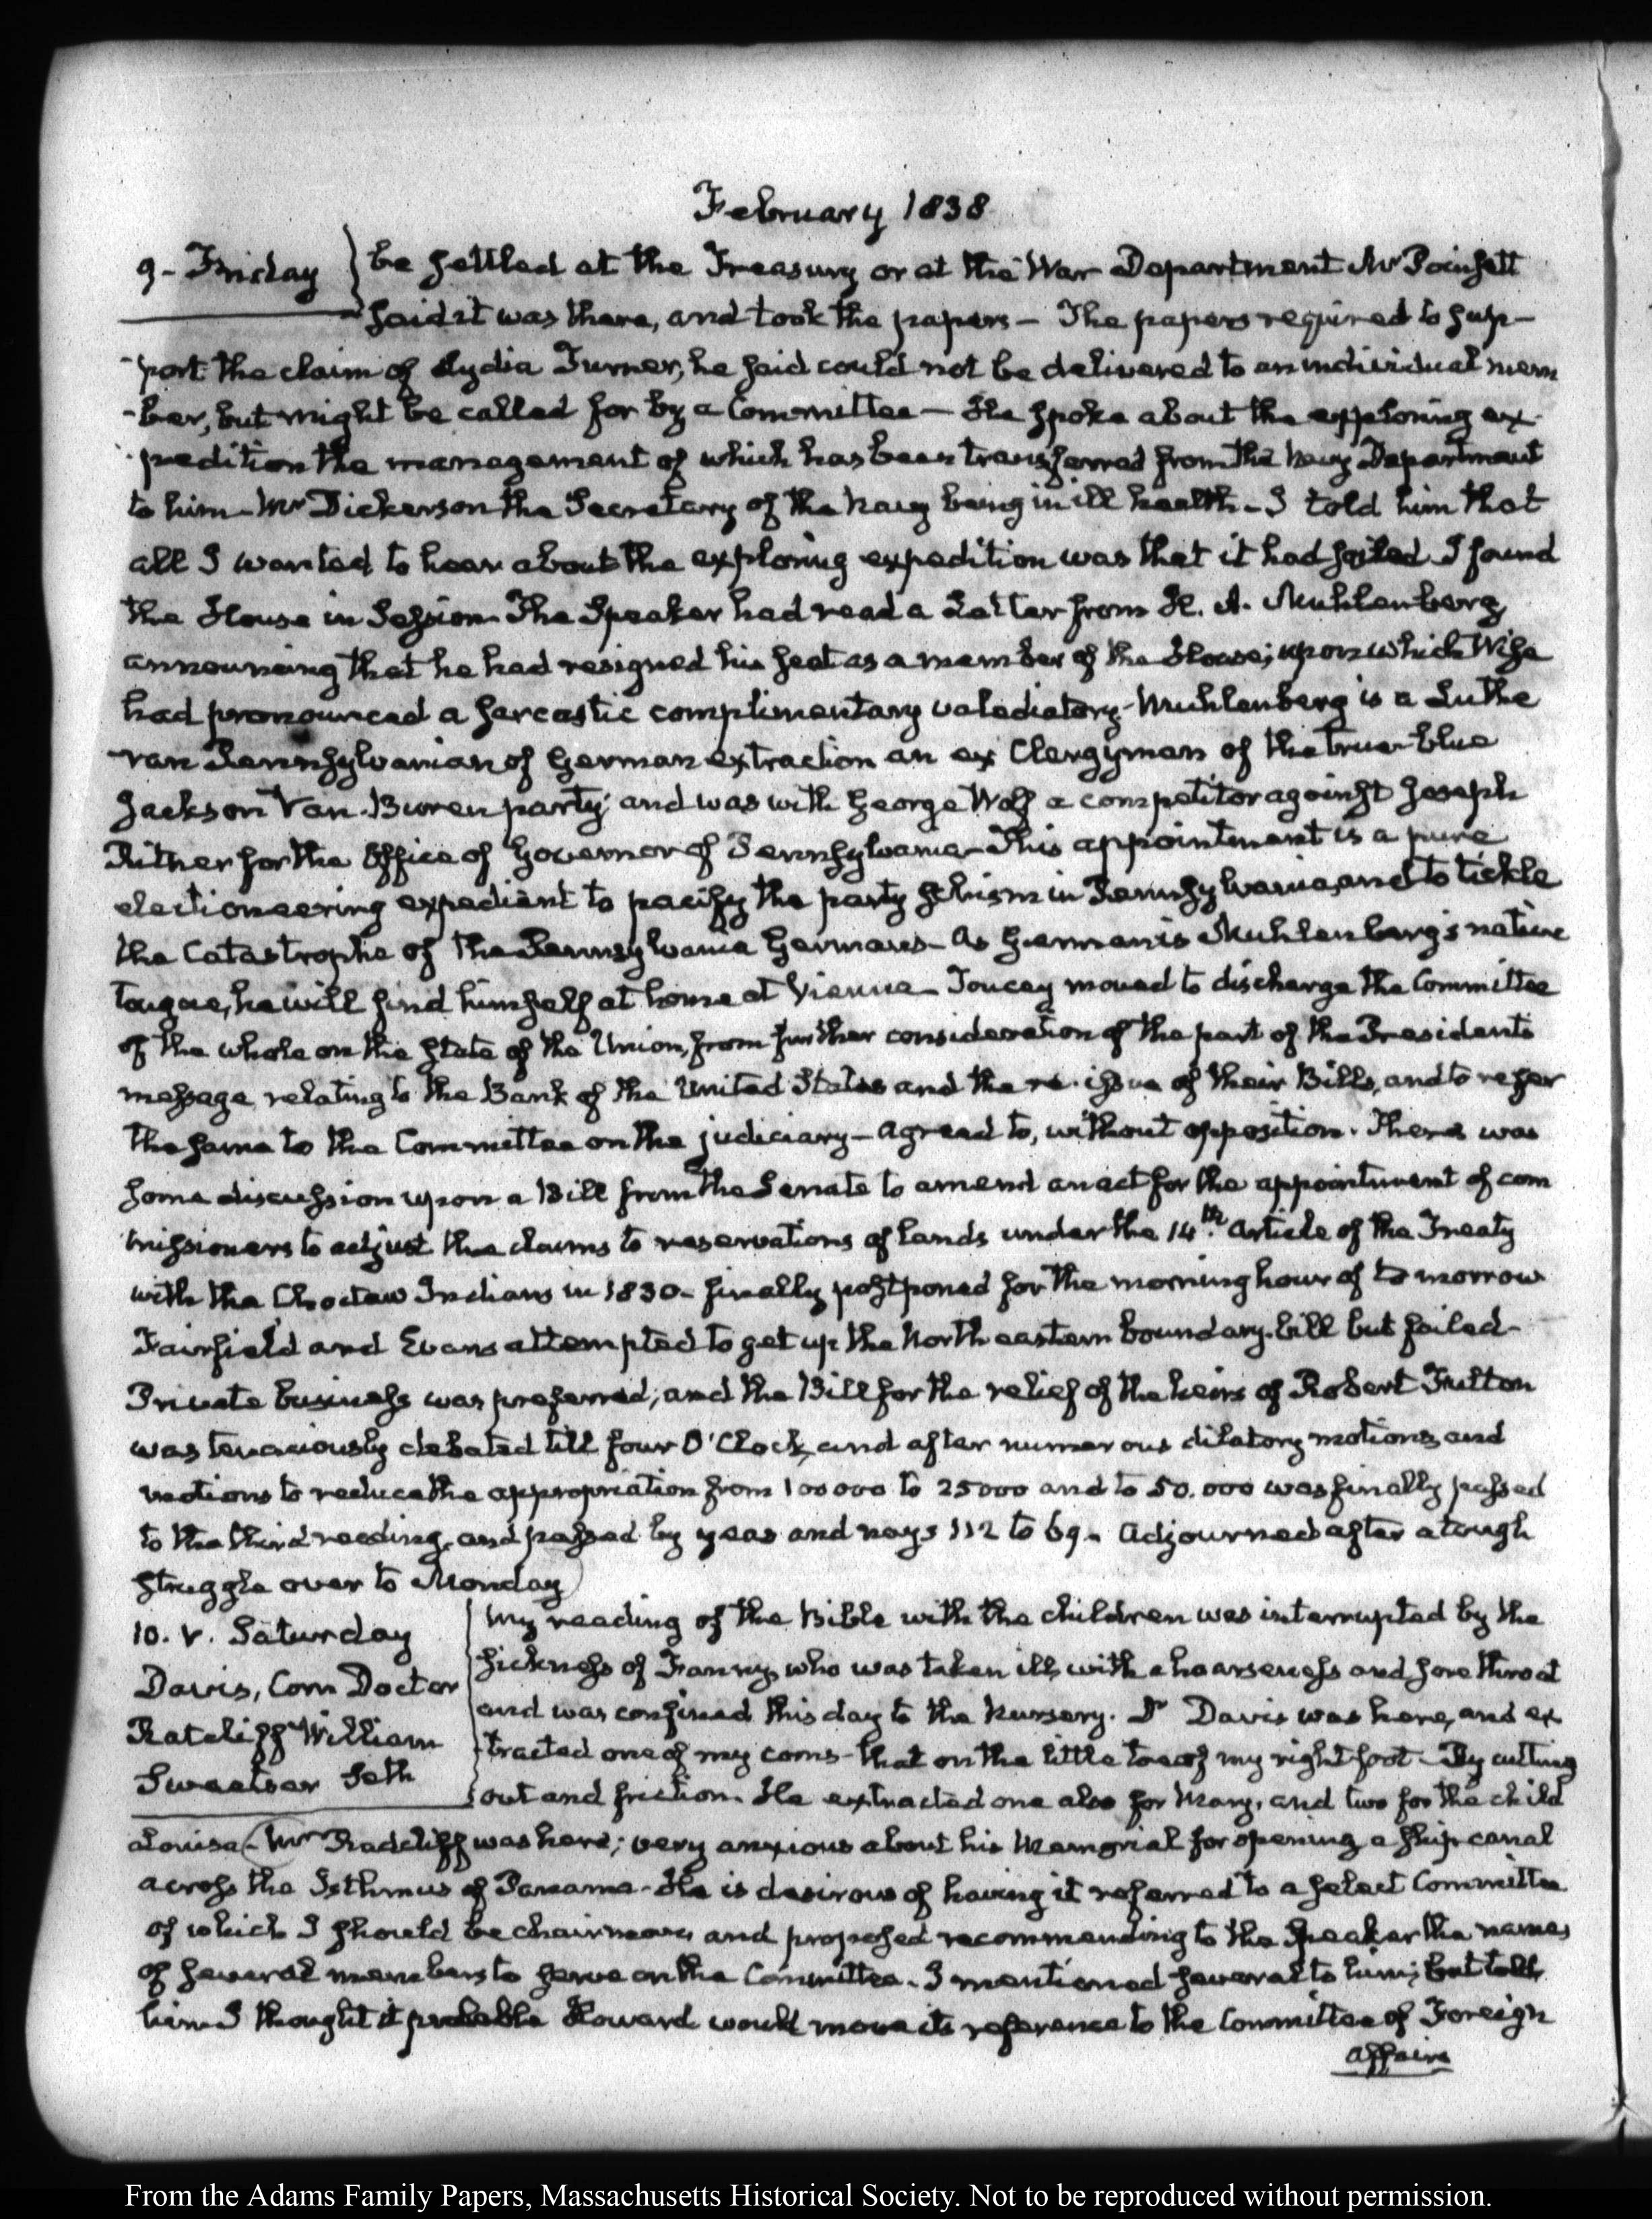 February 1838
9- Friday
be settled at the Treasury or at the War Department Mr Poinsett
said it was there, and took the papers — The papers required to sup-
-port the claim of Lydia Turner, he said could not be delivered to an individual mem
-ber, but might be called for by a Committee — He spoke about the exploring ex-
-pedition the management of which has been transferred from the Navy Department
to him - Mr Dickerson the Secretary of the Navy being in ill health - I told him that
all I wanted to hear about the exploring expedition was that it had sailed I found
the House in Session - The Speaker had read a Letter from H. A. Muhlenberg
announcing that he had resigned his seat as a member of the House; upon which Wise
had pronounced a sarcastic complimentary valedictory - Muhlenberg is a Luthe
-ran Pennsylvanian of German extraction an ex Clergyman of the true-blue
Jackson Van-Buren party and was with George Wolf a competitor against Joseph
Ritner for the Office of Governor of Pennsylvania - This appointment is a pure
electioneering expedient to pacify the party schism in Pennsylvania, and to tickle
the Catastrophe of the Pennsylvania Germans - As German is Muhlenberg's native
tongue, he will find himself at home at Vienna - Toucey moved to discharge the Committee
of the whole on the State of the Union, from further consideration of the part of the Presidents
message relating to the Bank of the United States and the re-issue of their Bills, and to refer
the same to the Committee on the judiciary — agreed to, without opposition. There was
some discussion upon a Bill from the Senate to amend an act for the appointment of com
missioners to adjust the claims to reservations of lands under the 14th. article of the Treaty
with the Choctaw Indians in 1830 - finally postponed for the morning hour of to morrow
Fairfield and Evans attempted to get up the North eastern boundary bill but failed -
Private business was preferred; and the Bill for the relief of the heirs of Robert Fulton
was tenaciously debated till four O'Clock, and after numerous dilatory motions, and
motions to reduce the appropriation from 100000 to 25000 and to 50.000 was finally passed
to the third reading, and passed by yeas and nays 112 to 69 - Adjourned after a tough
struggle over to Monday
10. V. Saturday
Davis, Corn Doctor
Ratcliff William
Sweetser Seth
My reading of the Bible with the children was interrupted by the
sickness of Fanny, who was taken ill, with a hoarseness and sore throat
and was confined this day to the Nursery. Dr Davis was here, and ex
tracted one of my corns - that on the little toe of my right foot - By cutting
out and friction. He extracted one also for Mary, and two for the child
Louisa - Mr Radcliff was here; very anxious about his Memorial for opening a ship canal
across the Isthmus of Panama - He is desirous of having it referred to a select Committee
of which I should be chairman, and proposed recommending to the Speaker the names
of several members to serve on the Committee. I mentioned several to him; but told
him I thought it probable Howard would move its reference to the Committee of Foreign
affairs
From the Adams Family Papers, Massachusetts Historical Society. Not to be reproduced without permission.